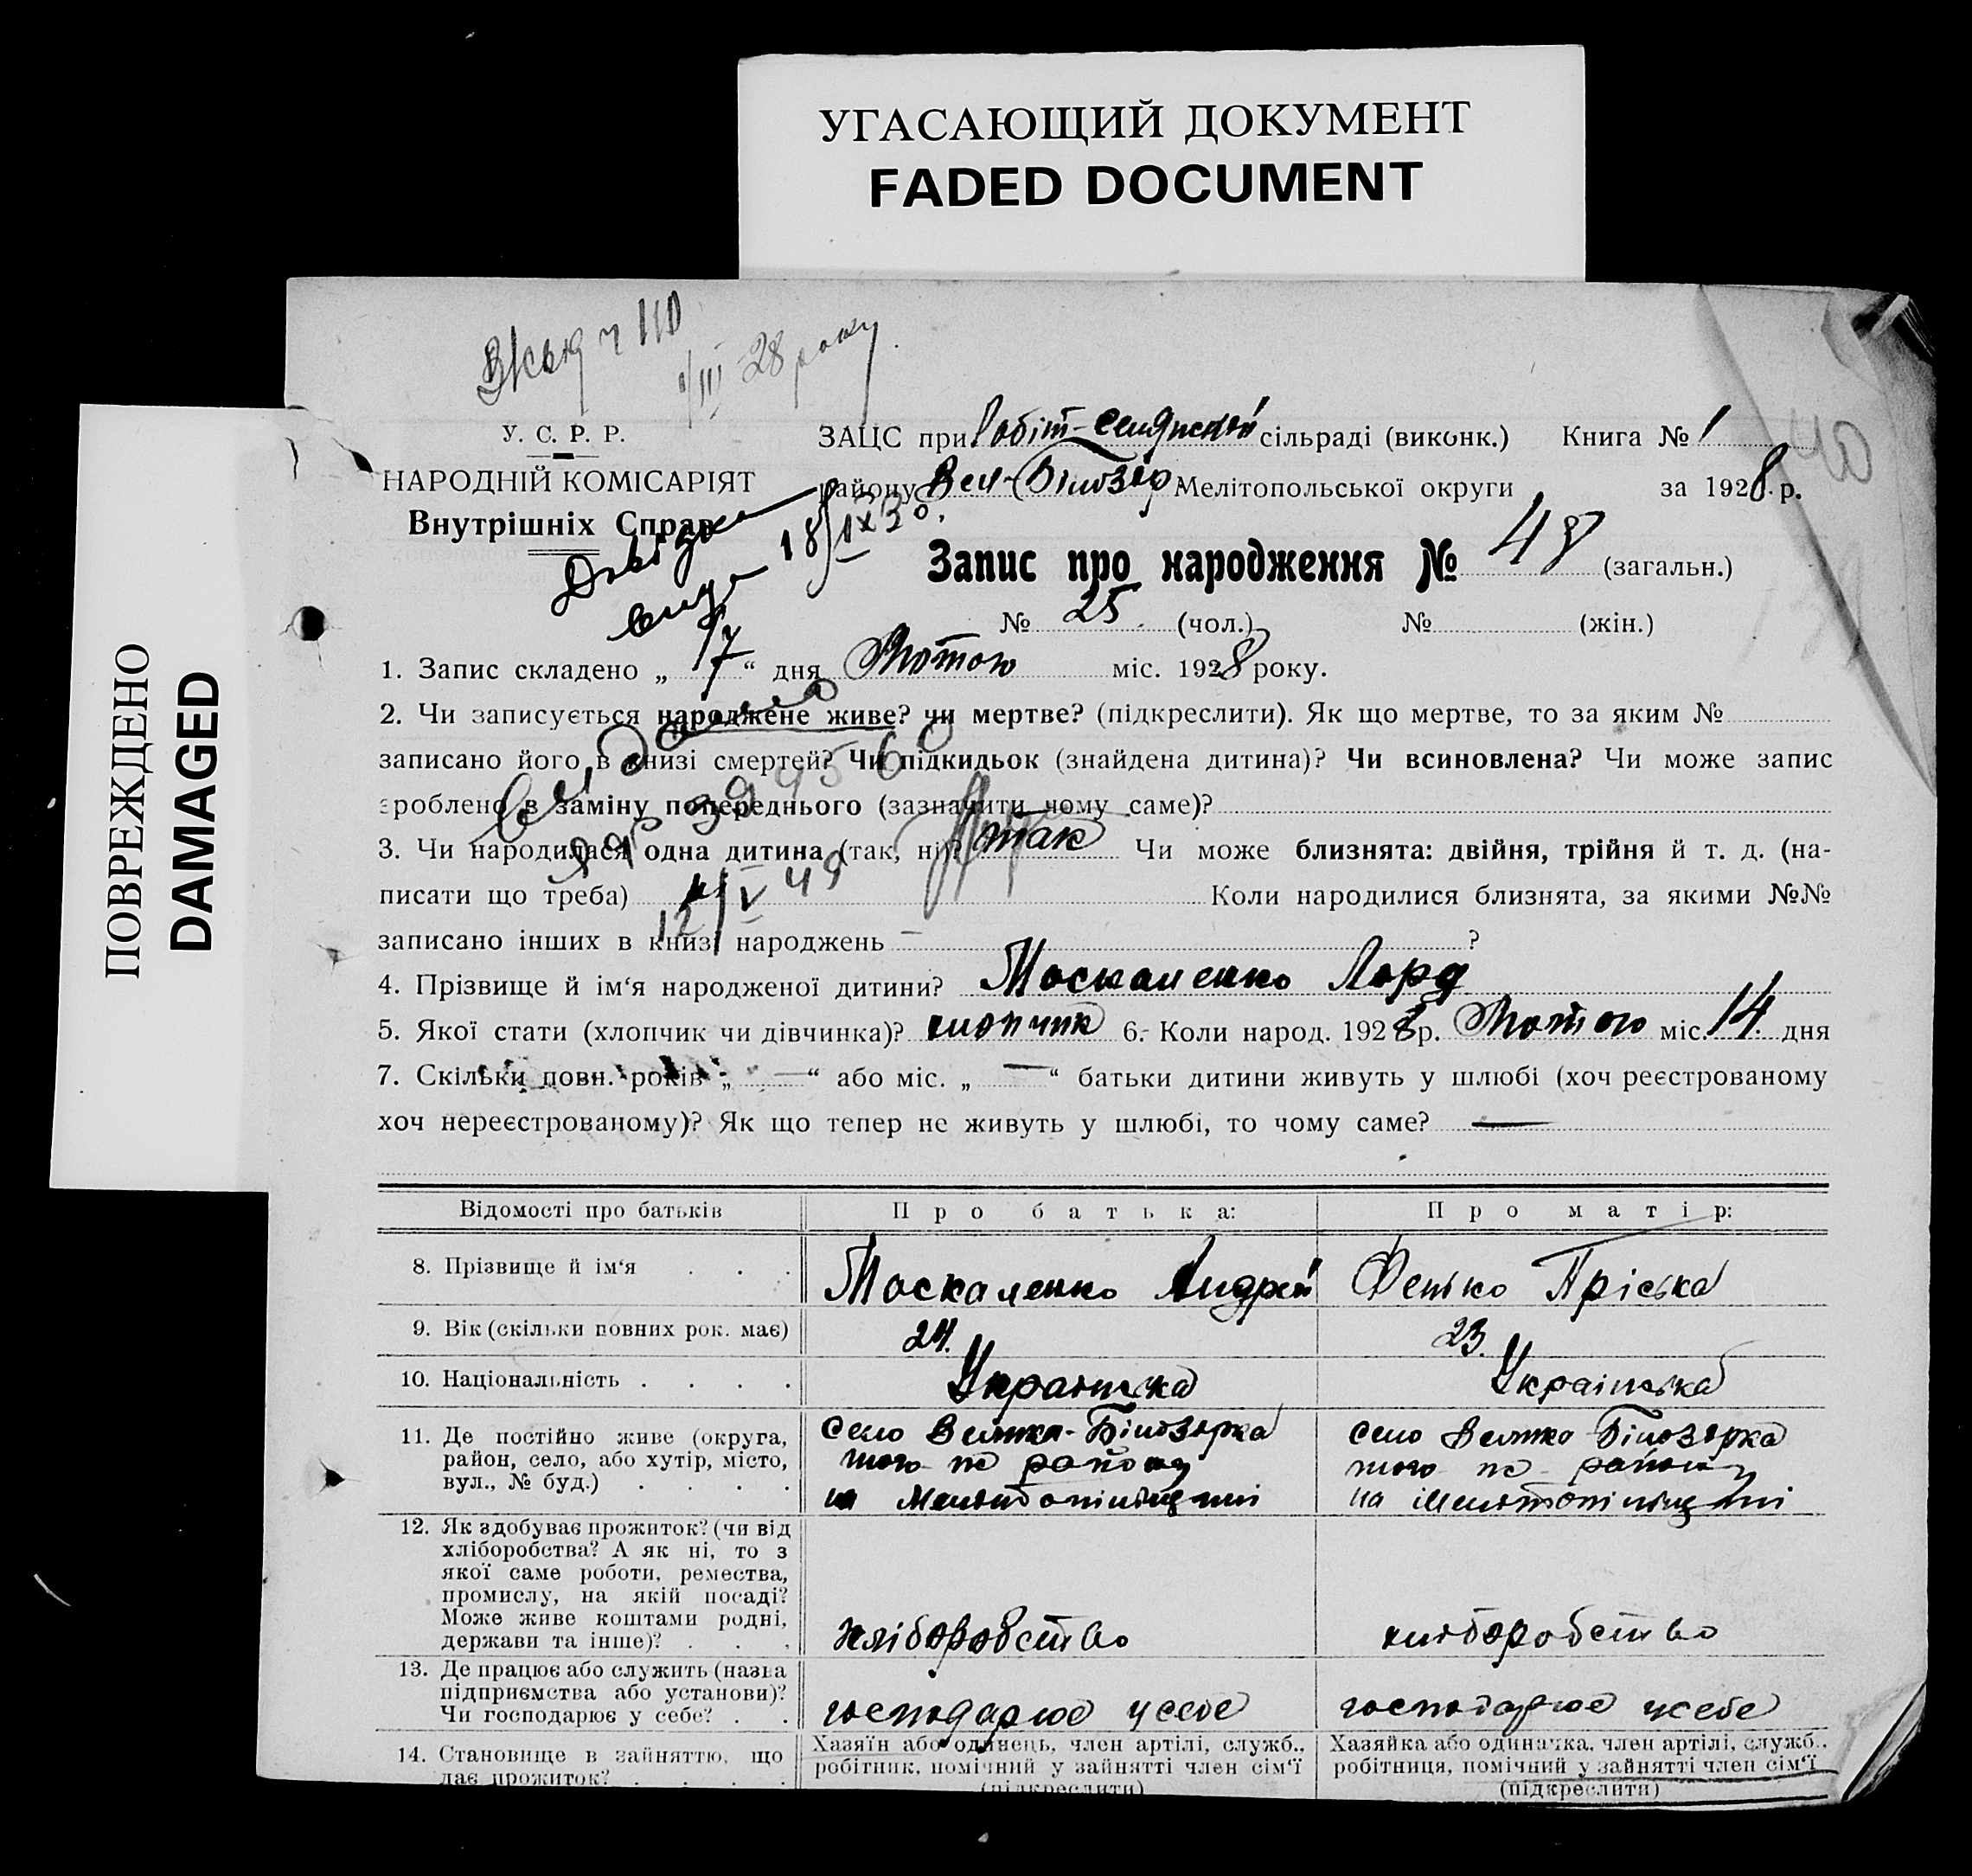 УГАСАЮЩИЙ ДОКУМЕНТ
FADED DOCUMENT
ПОВРЕЖДЕНО
DAMAGED
110
/III 28 року
У. С. Р. Р.
НАРОДНІЙ КОМІСАРІЯТ
Внутрішніх Справ
ЗАЦС при Робіт-Селянській сільраді (виконк.) Книга № 1
району Вел-Білозір. Мелітопольської округи за 1928 р.
40
18/IX 30
Запис про народження № 48 (загальн.)
№ 25 (чол.) № (жін.)
1. Запис складено „ 17 “ дня Лютого міс. 1928 року.
2. Чи записується народжене живе? чи мертве? (підкреслити). Як що мертве, то за яким №
записано його в книзі смертей? Чи підкидьок (знайдена дитина)? Чи всиновлена? Чи може запис
зроблено в заміну попереднього (зазначити чому саме)?
3. Чи народилася одна дитина (так, ні)? так Чи може близнята: двійня, трійня й т. д. (на-
писати що треба) Коли народилися близнята, за якими №№
12/V 49
записано інших в книзі народжень — ?
4. Прізвище й ім‘я народженої дитини? Москаленко Лорд
5. Якої стати (хлопчик чи дівчинка)? хлопчик 6. Коли народ. 1928 р. Лютого міс. 14 дня
7. Скільки повн. років „ — “ або міс. „ — “ батьки дитини живуть у шлюбі (хоч реєстрованому
хоч нереєстрованому)? Як що тепер не живуть у шлюбі, то чому саме? —
Відомості про батьків Про батька: Про матір:
8. Прізвище й ім‘я . . . Москаленко Андрій Фенько Пріська
9. Вік (скільки повних рок. має) 24. 23.
10. Національність . . . . Українська Українська
11. Де постійно живе (округа, село Велика-Білозірка село Велика Білозірка
район, село, або хутір, місто, того ж району того ж району
вул., № буд.) . . . . на Мелітопільщині на Мелітопільщині
12. Як здобуває прожиток? (чи від
хліборобства? А як ні, то з
якої саме роботи, ремества,
промислу, на якій посаді?
Може живе коштами родні,
держави та інше)? . . . хліборобство хліборобство
13. Де працює або служить (назва
підприємства або установи)?
Чи господарює у себе? . . господарює у себе господарює у себе
14. Становище в зайняттю, що Хазяїн або одинець, член артілі, служб., Хазяйка або одиначка, член артілі, служб.,
дає прожиток? . . . . робітник, помічний у зайнятті член сім‘ї робітниця, помічний у зайнятті член сім‘ї
(підкреслити) (підкреслити)